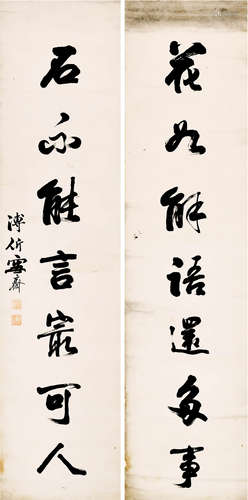 花如解語還多事
石不能言最可人
溥伒雪齋